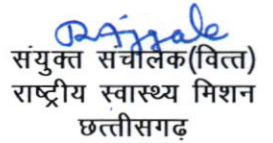 संयुक्त संचालक(वित्त)
राष्ट्रीय स्वास्थ्य मिशन
छत्तीसगढ़